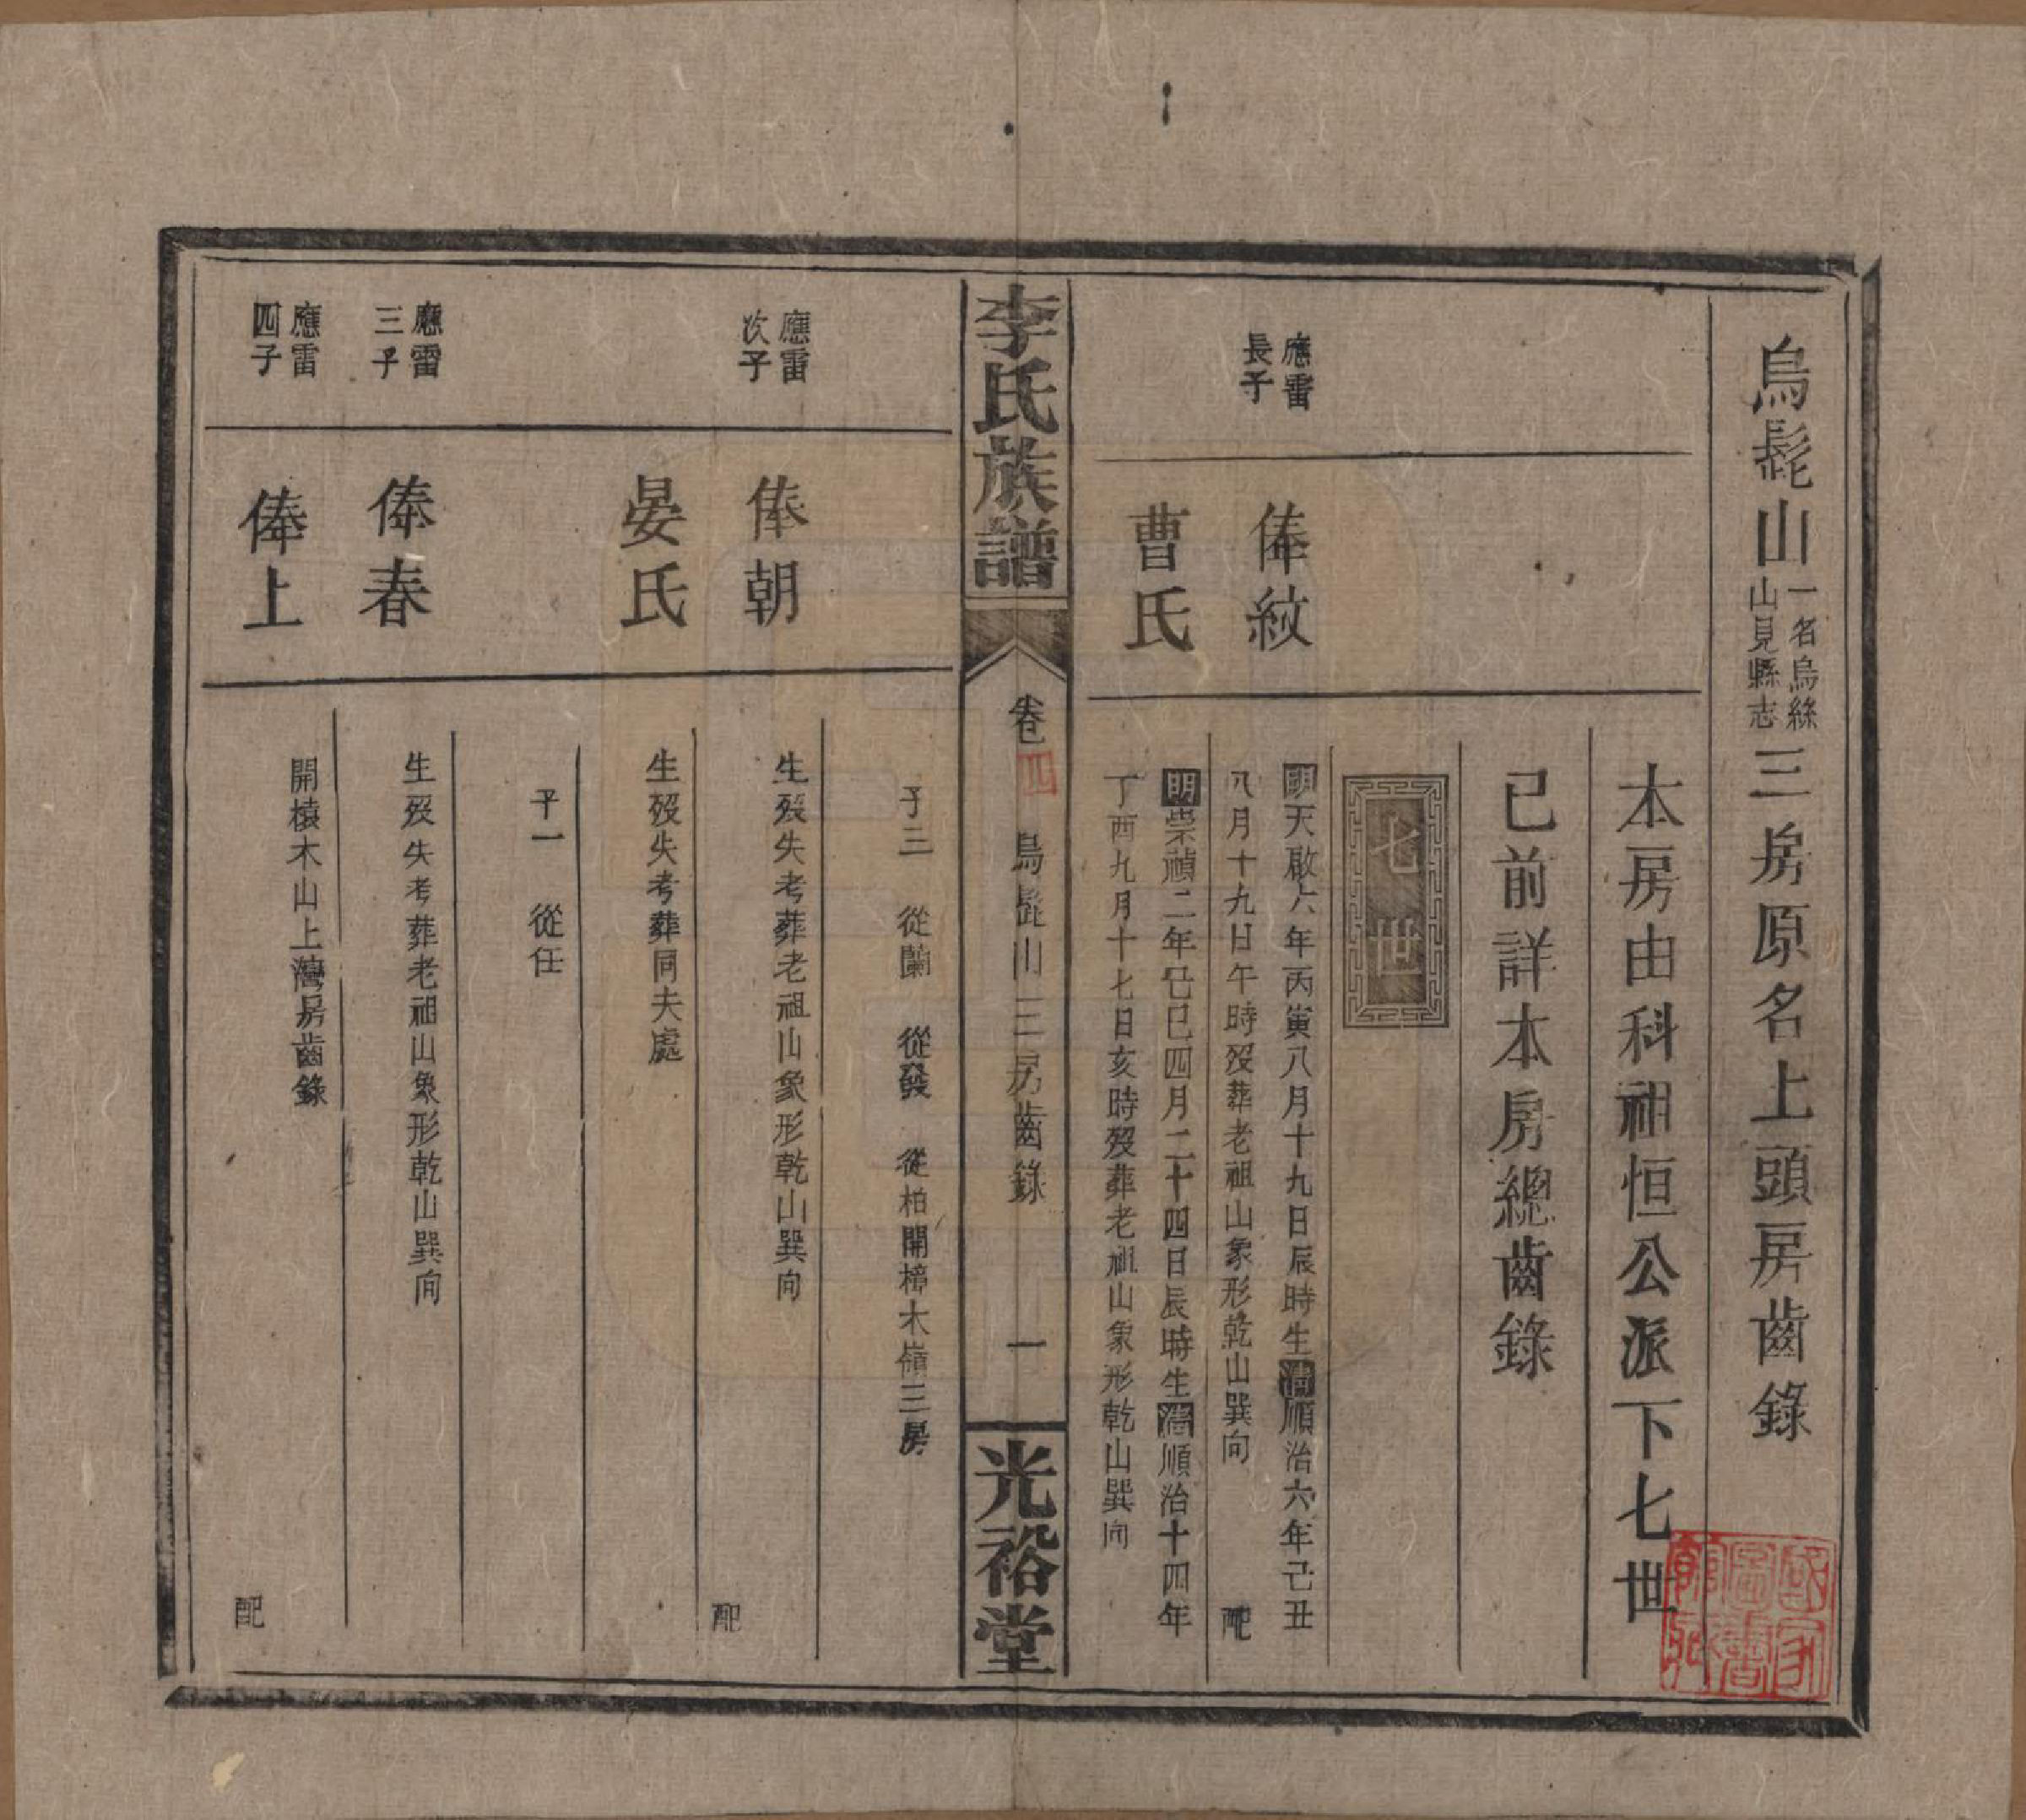 烏髭山一名烏絲山見縣志三房原名上頭房齒錄
本房由科祖恒公派下七世
已前詳本房總齒錄
七世
應雷長子
俸紋
明天啟六年丙寅八月十九日辰時生清順治六年己丑
八月十九日午時歿葬老祖山象形乾山巽向 配
曹氏
明崇禎二年己巳四月二十四日辰時生清順治十四年
丁酉九月十七日亥時歿葬老祖山象形乾山巽向
李氏族譜
卷四
烏髭山三房齒錄
一
光裕堂
子三 從蘭 從發 從柏開樟木嶺三房
應雷次子
俸朝
生歿失考葬老祖山象形乾山巽向 配
晏氏
生歿失考葬同夫處
子一 從任
應雷三子
俸春
生歿失考葬老祖山象形乾山巽向
應雷四子
俸上
開檍木山上灣房齒錄 配